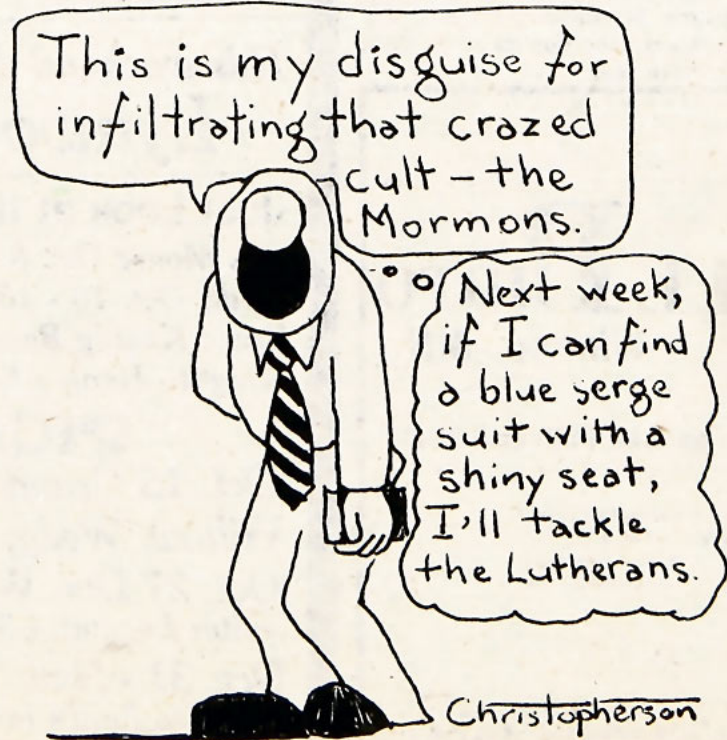 This is my disguise for
infiltrating that crazed
cult – the
Mormons.
Next week,
if I can find
a blue serge
suit with a
shiny seat,
I'll tackle
the Lutherans.
Christopherson